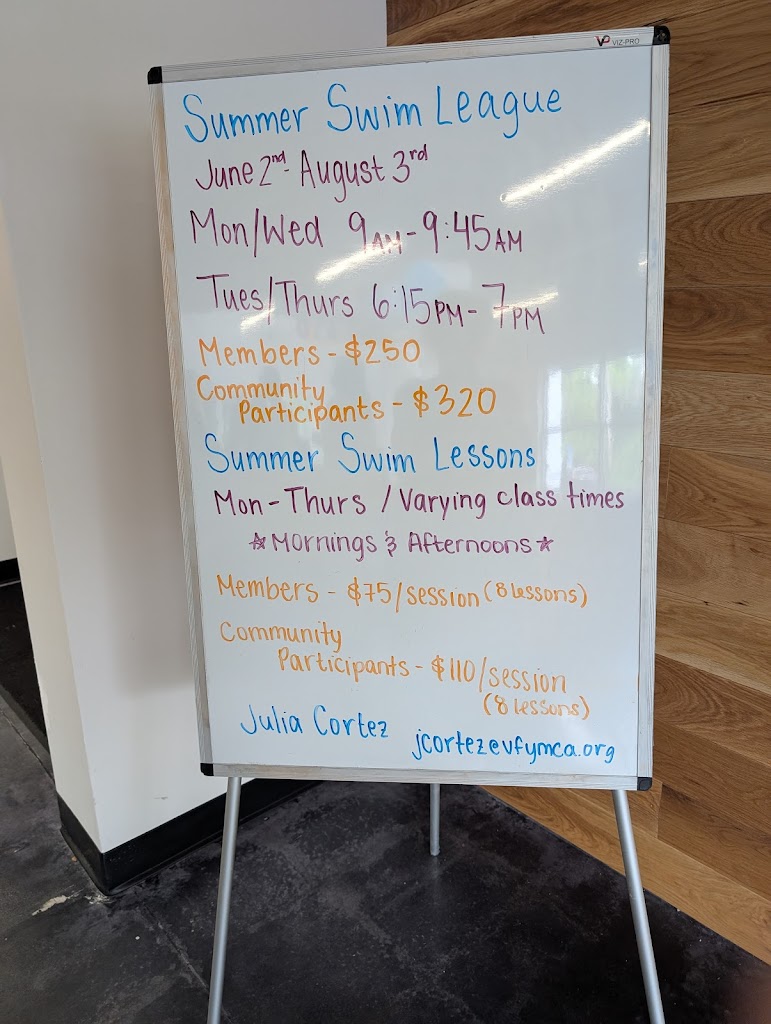 VP VIZ-PRO
Summer Swim League
June 2nd - August 3rd
Mon/Wed 9AM-9:45AM
Tues/Thurs 6:15PM-7PM
Members - $250
Community
Participants - $320
Summer Swim Lessons
Mon-Thurs / Varying class times
☆Mornings & Afternoons☆
Members - $75/session (8 lessons)
Community
Participants - $110/session
(8 lessons)
Julia Cortez jcortezevfymca.org